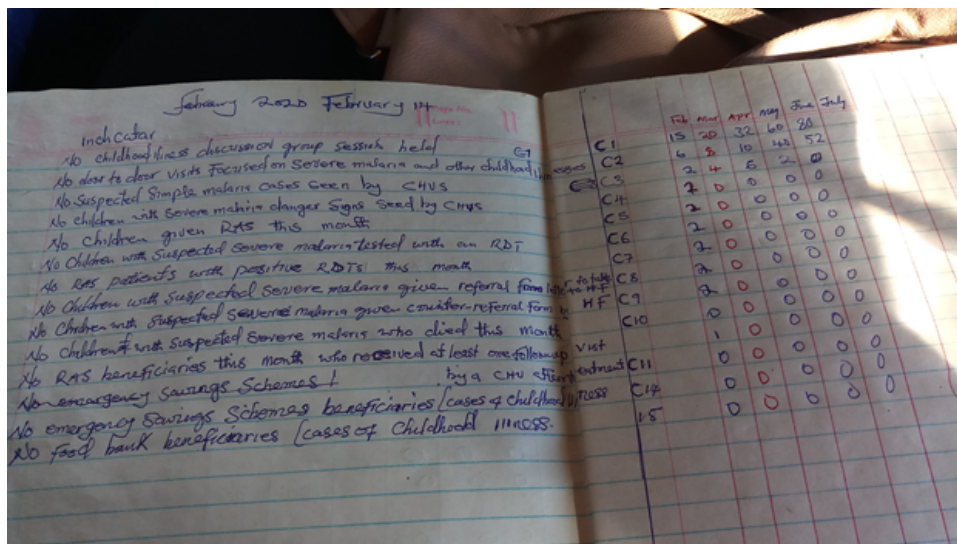 February 2020 February 14
Indicator
No childhood illness discussion group session held C1
No door to door visits focused on severe malaria and other childhood illnesses
No Suspected Simple malaria cases seen by CHVS
No children with severe malaria danger signs seed by CHVS
No Children given RAS this month
No Children with suspected severe malaria tested with an RDT
No RAS patients with positive RDTs this month
No Children with suspected severe malaria given referral form to take to HF
No Children with suspected severe malaria given counter-referral form by HF
No Children with suspected severe malaria who died this month
No RAS beneficiaries this month who received at least one followup visit
by a CHV after treatment
No emergency Savings Schemes
No emergency Savings Schemes beneficiaries [cases of childhood illness
No food bank beneficiaries [cases of Childhood illness.
Feb Mar Apr May June July
C1 15 20 32 60 80
C2 6 8 10 48 52
C3 2 4 6 2 0
C4 2 0 0 0 0
C5 2 0 0 0 0
C6 2 0 0 0 0
C7 2 0 0 0 0
C8 2 0 0 0 0
C9 0 0 0 0 0
C10 1 0 0 0 0
C11 0 0 0 0 0
C14 0 0 0 0 0
15 0 0 0 0 0